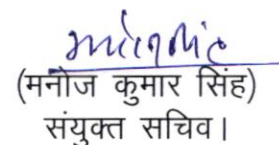 (मनोज कुमार सिंह)
संयुक्त सचिव।